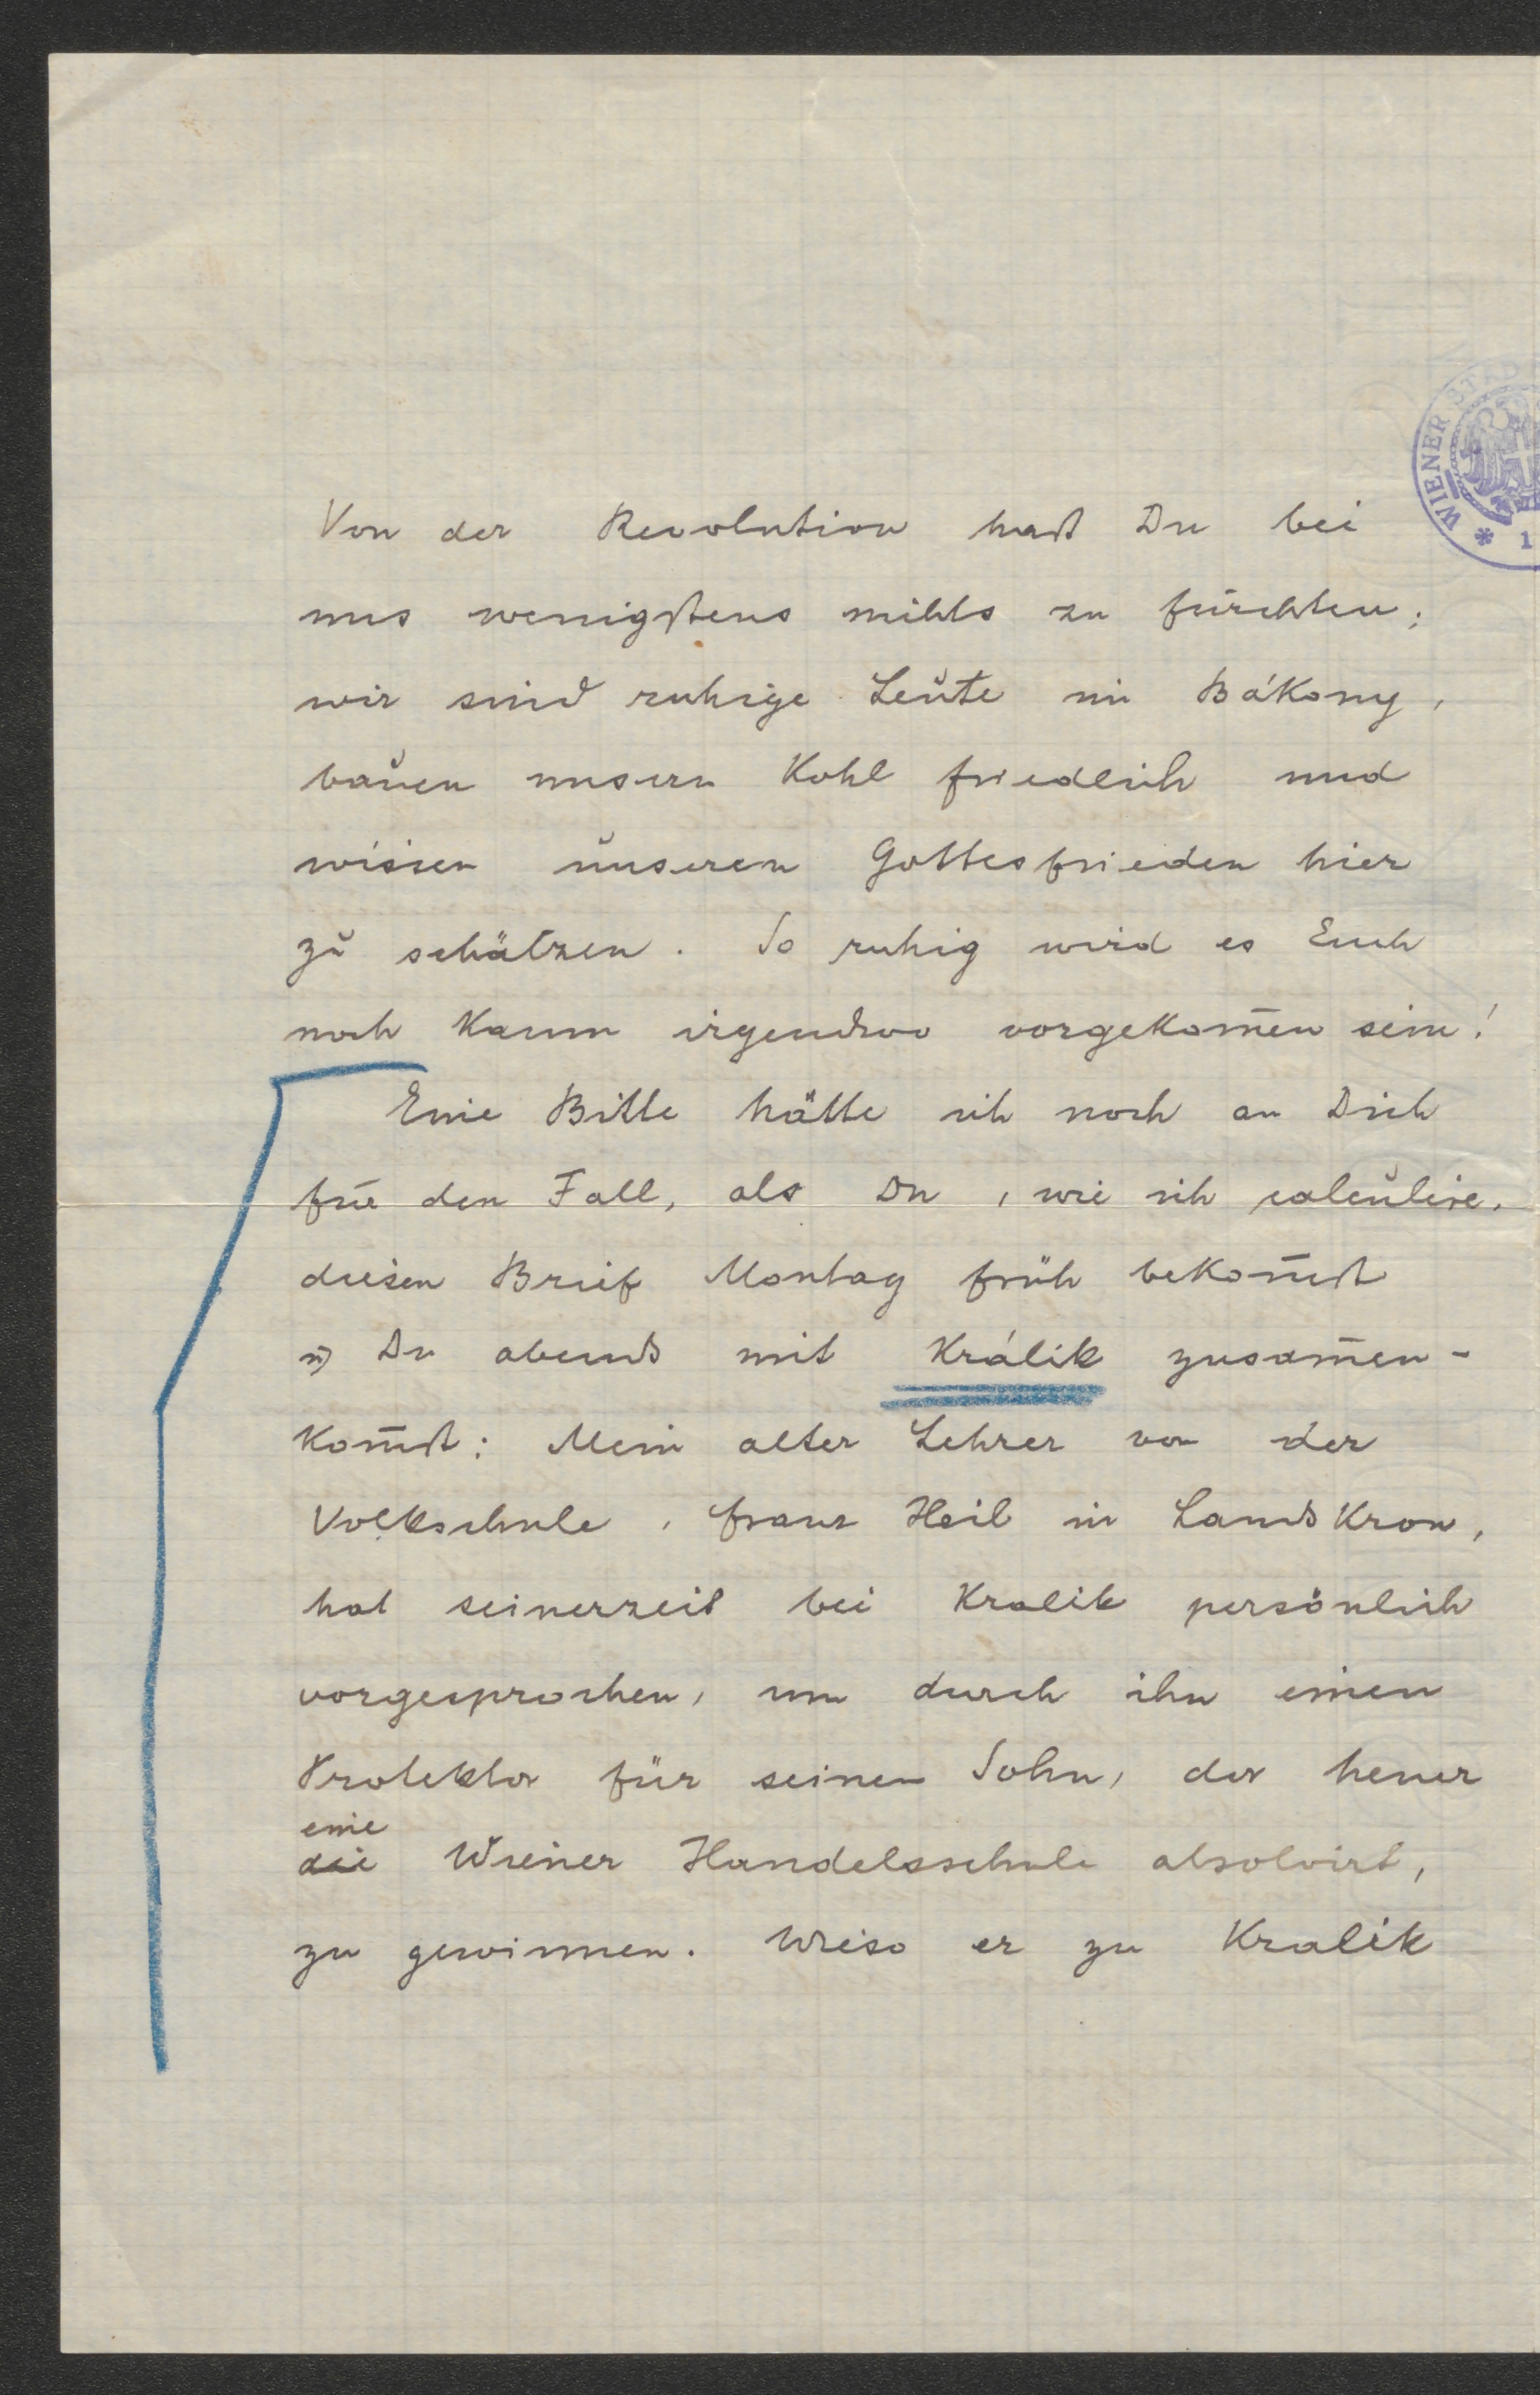 Von der Revolution hast Du bei
uns wenigstens nichts zu fürchten;
wir sind ruhige Leute im Bákony,
bauen unsern Kohl friedlich und
wissen unseren Gottesfrieden hier
zu schätzen. So ruhig wird es Euch
noch kaum irgendwo vorgekom̄en sein!
Eine Bitte hätte ich noch an Dich
für den Fall, als Du, wie ich calculire,
diesen Brief Montag früh bekom̄st
u Du abends mit Králik zusam̄en-
kom̄st: Mein alter Lehrer von der
Volksschule, Franz Heil in Landskron,
hat seinerzeit bei Kralik persönlich
vorgesprochen, um durch ihn einen
Protektor für seinen Sohn, der heuer
eine
die Wiener Handelsschule absolvirt,
zu gewinnen. Wieso er zu Kralik
WIENER STAD
* 1